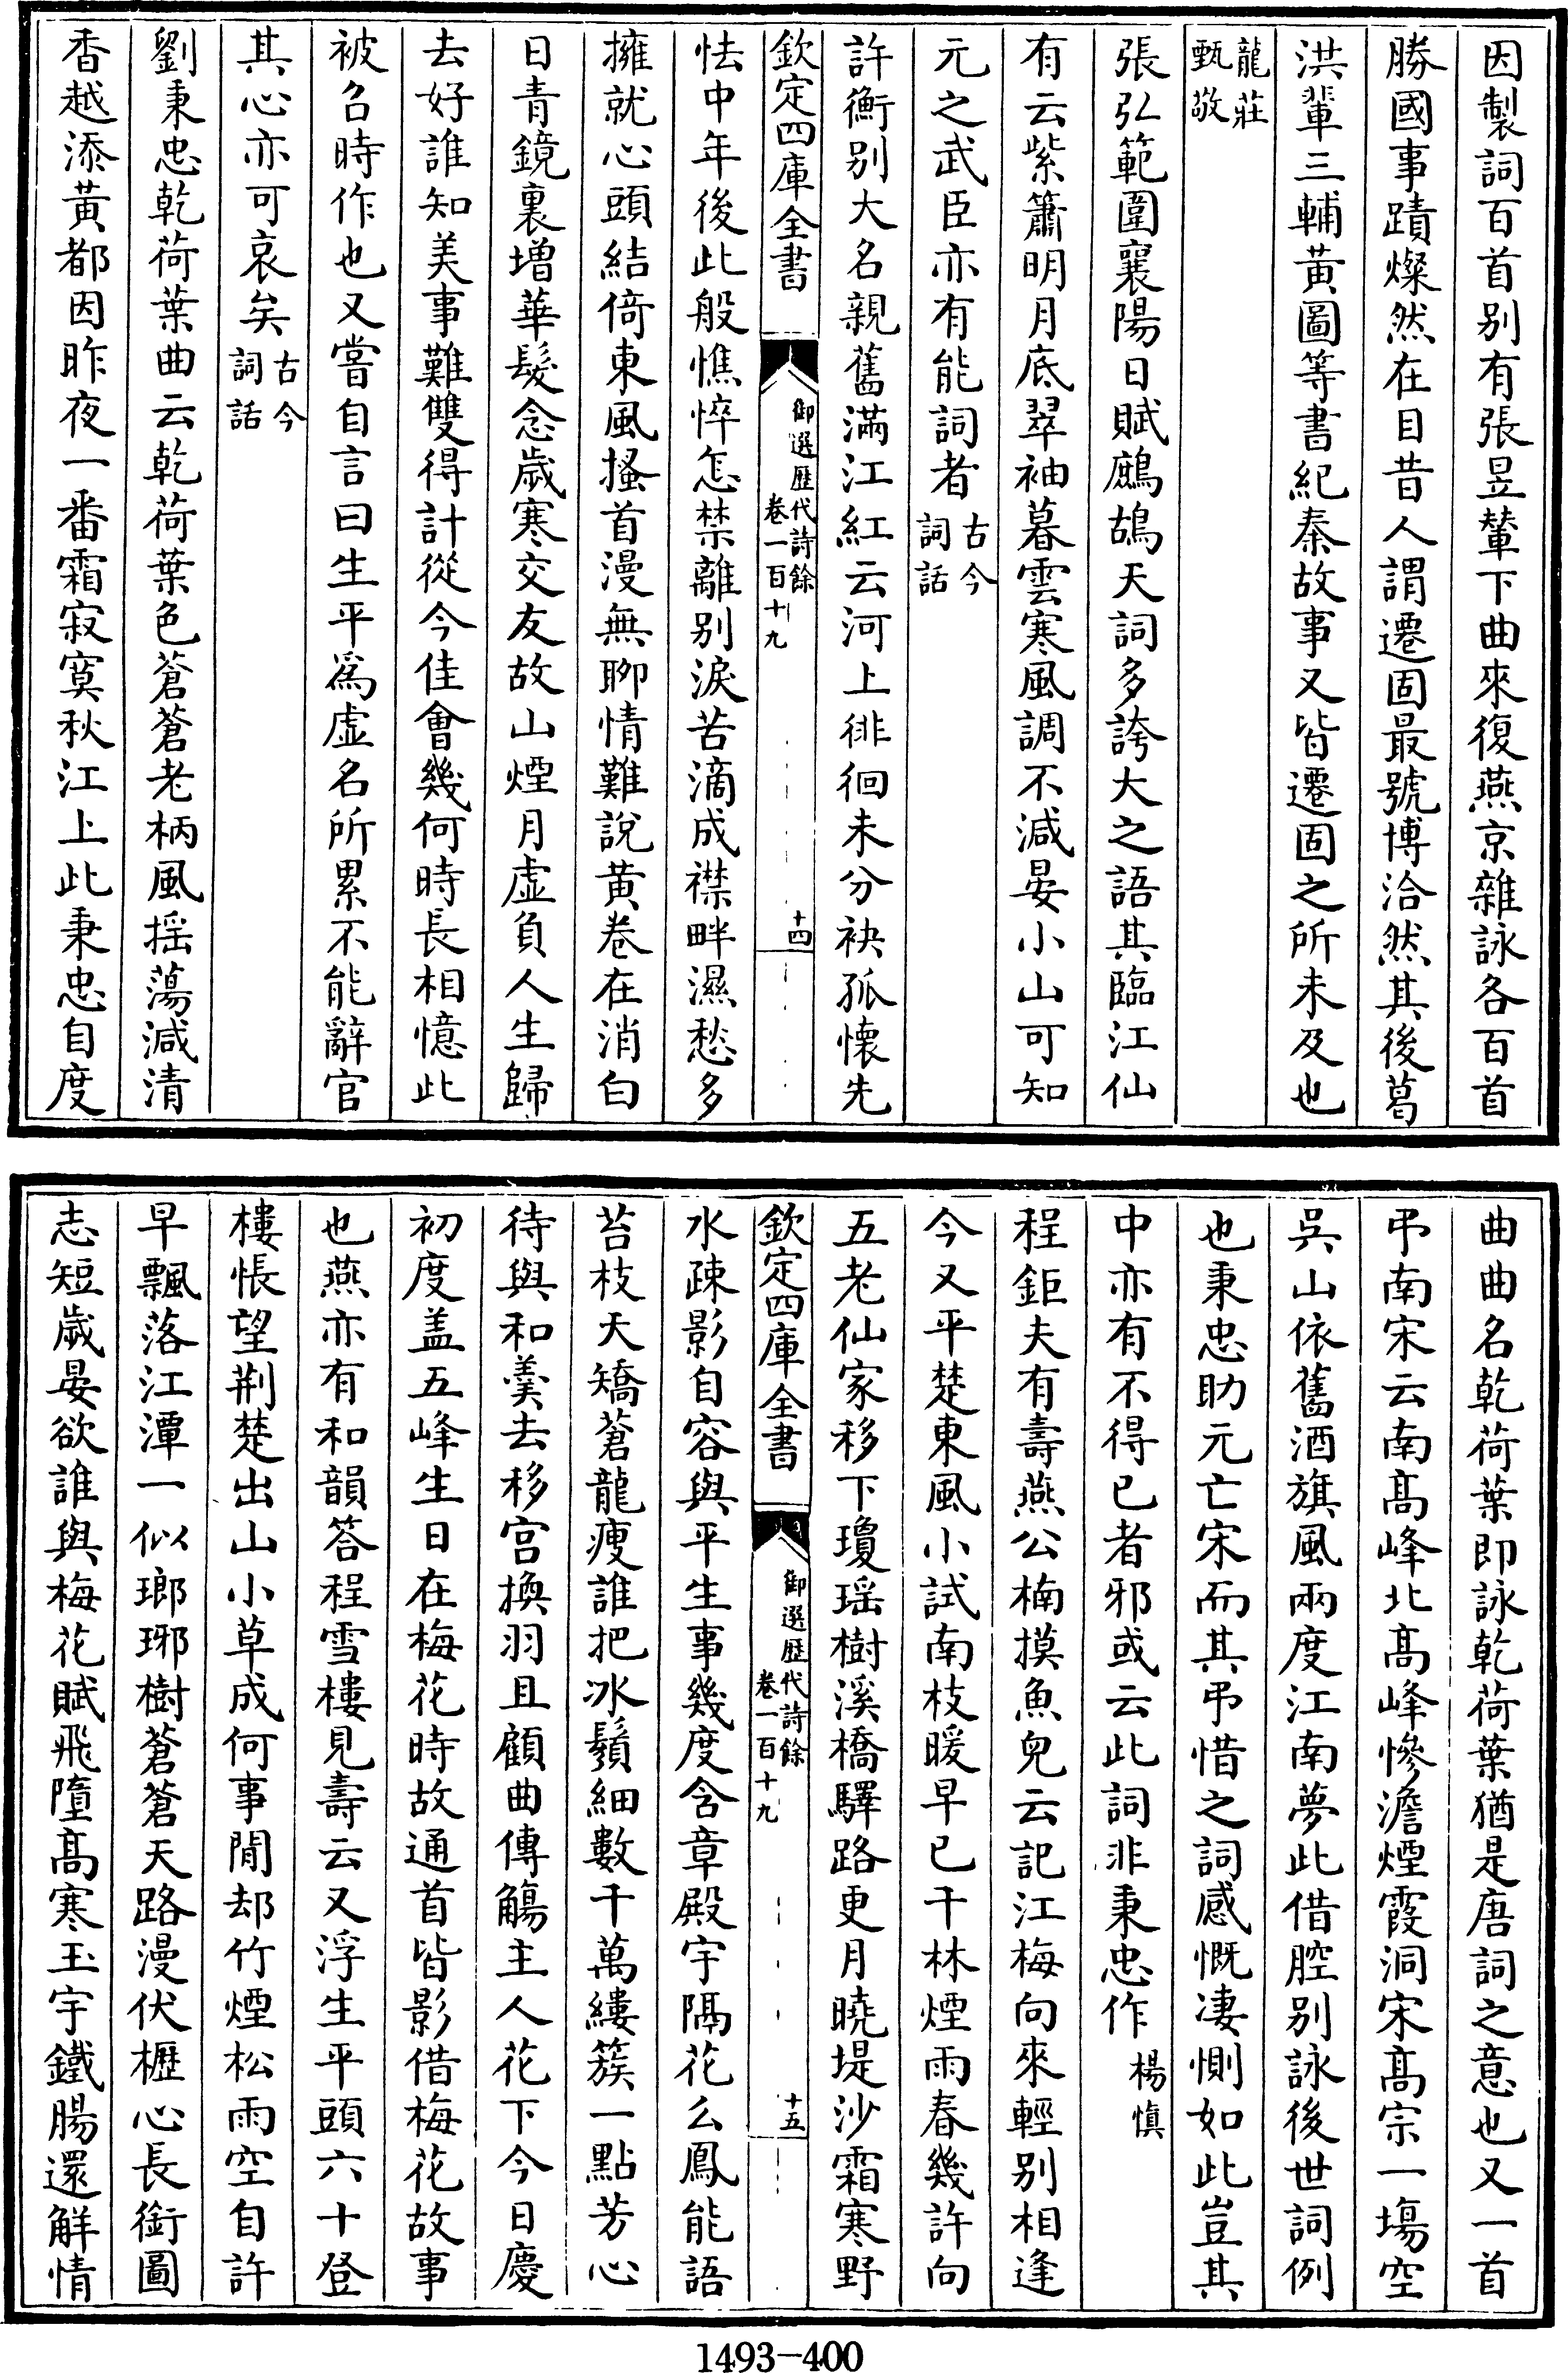 因製詞百首别有張昱輦下曲來復燕京雜詠各百首
勝國事蹟燦然在目昔人謂遷固最號博洽然其後葛
洪輩三輔黃圖等書紀秦故事又皆遷固之所未及也
龍莊
甄敬
張弘範圍襄陽日賦鷓鴣天詞多誇大之語其臨江仙
有云紫簫明月底翠袖暮雲寒風調不減晏小山可知
元之武臣亦有能詞者古今
詞話
許衡别大名親舊滿江紅云河上徘徊未分袂孤懷先
欽定四庫全書
御選歷代詩餘
卷一百十九
十四
怯中年後此般憔悴怎禁離别淚苦滴成襟畔濕愁多
擁就心頭結倚東風搔首漫無聊情難說黃卷在消白
日青鏡裏增華髮念歲寒交友故山煙月虛負人生歸
去好誰知美事難雙得計從今佳會幾何時長相憶此
被召時作也又嘗自言曰生平爲虛名所累不能辭官
其心亦可哀矣古今
詞話
劉秉忠乾荷葉曲云乾荷葉色蒼蒼老柄風摇蕩減清
香越添黃都因昨夜一番霜寂寞秋江上此秉忠自度
曲曲名乾荷葉即詠乾荷葉猶是唐詞之意也又一首
弔南宋云南髙峰北髙峰慘澹煙霞洞宋髙宗一塲空
吳山依舊酒旗風兩度江南夢此借腔别詠後世詞例
也秉忠助元亡宋而其弔惜之詞感慨凄惻如此豈其
中亦有不得已者邪或云此詞非秉忠作楊慎
程鉅夫有壽燕公楠摸魚兒云記江梅向來輕别相逢
今又平楚東風小試南枝暖早已千林煙雨春幾許向
五老仙家移下瓊瑶樹溪橋驛路更月曉堤沙霜寒野
欽定四庫全書
御選歷代詩餘
卷一百十九
十五
水疎影自容與平生事幾度含章殿宇隔花么鳳能語
苔枝天矯蒼龍瘦誰把冰鬚細數千萬縷簇一點芳心
待與和羹去移宫換羽且顧曲傳觴主人花下今日慶
初度盖五峰生日在梅花時故通首皆影借梅花故事
也燕亦有和韻答程雪樓見壽云又浮生平頭六十登
樓悵望荆楚出山小草成何事閒却竹煙松雨空自許
早飄落江潭一似瑯琊樹蒼蒼天路漫伏櫪心長銜圖
志短歲晏欲誰與梅花賦飛墮髙寒玉宇鐵腸還解情
1493-400